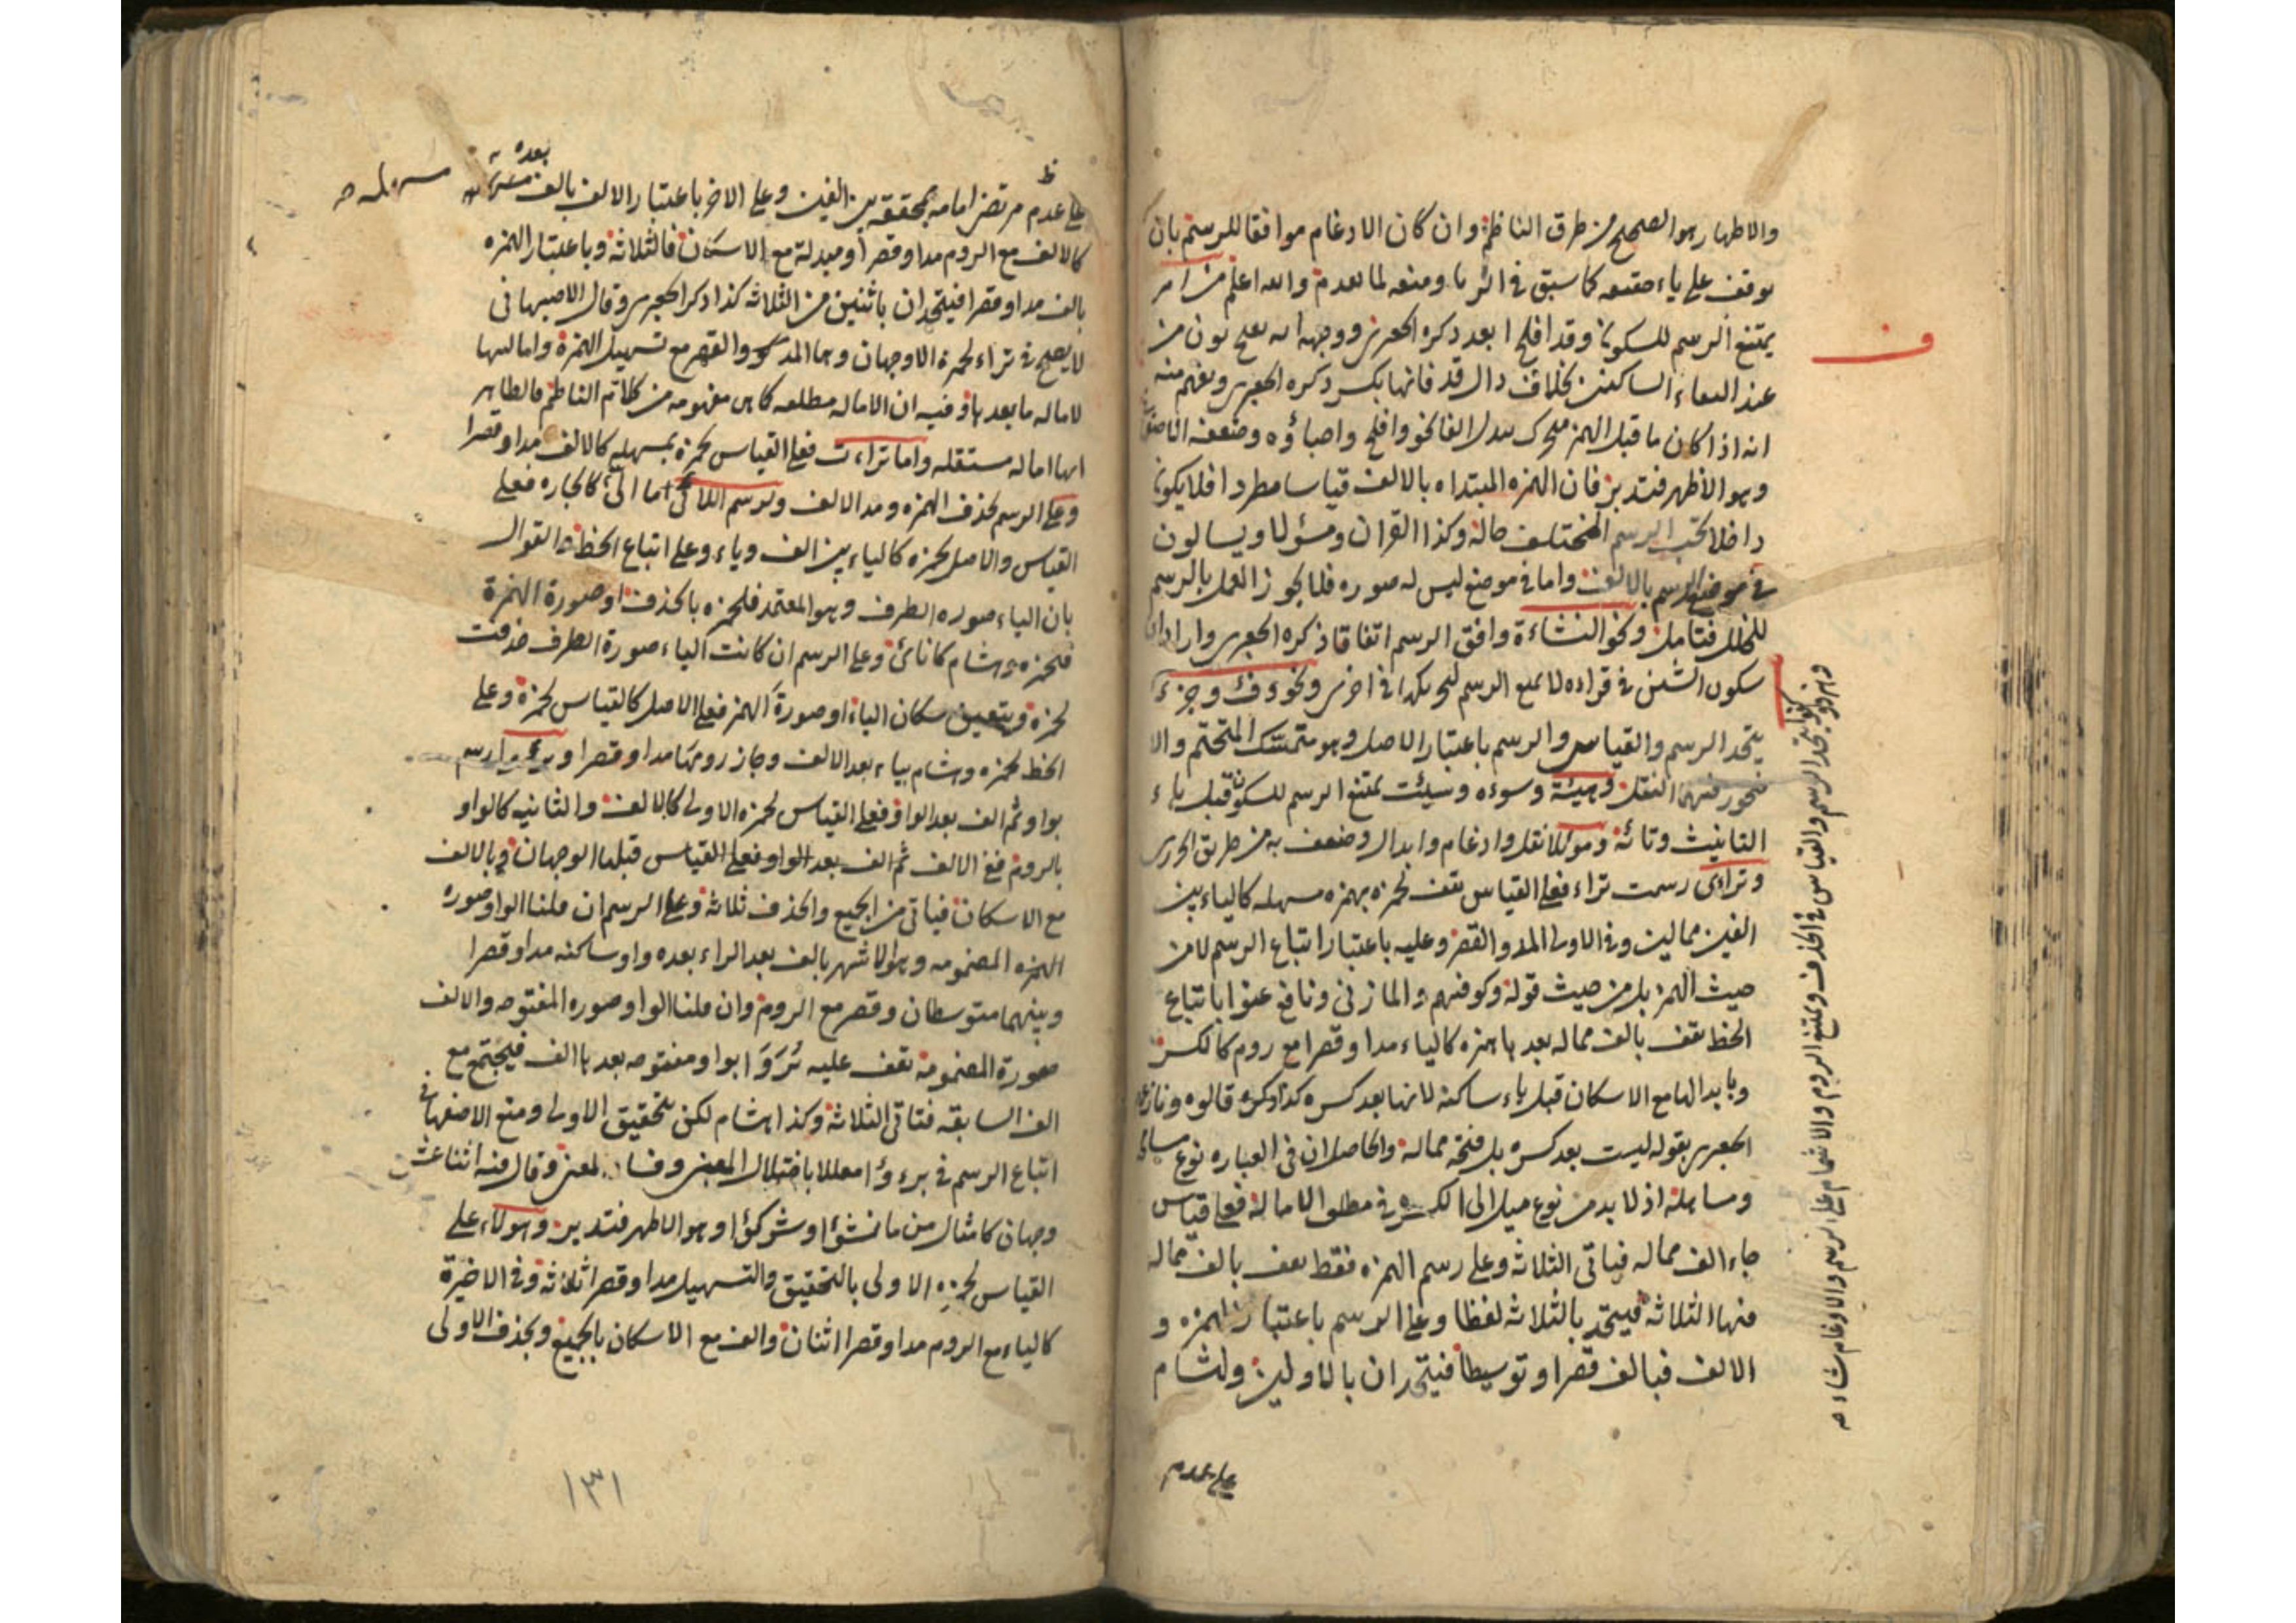 والاظهار هو الصحيح من طرق الناظم وان كان الادغام موافقا للرسم بان
يوقف على ياء كما سبق في الرءيا ومنعه لما تقدم والله اعلم من امر
يمتنع الرسم للسكون وقد افلح ابعد ذكره الجعبري ووجهه انه يصح نون من
عند الساكنين بخلاف دال قد فانها بكسر ذكره الجعبري ويفهم منه
انه اذا كان ما قبل الهمز متحرك يبدل الفا نحو افلح واصباؤه وضعفه
وهو الاظهر فتدبر فان الهمزه المبتداه بالالف قياسا مطردا فلا يكون
داخلا تحت الرسم المختلف حاله وكذا القران ومسؤلا ويسالون
في موضع الرسم بالالف واما في موضع ليس له صوره فلا يجوز العمل بالرسم
للخلل فتامل ونحو النشاءة وافق الرسم اتفاقا ذكره الجعبري واراد ان
سكون الشين في قراءه لا يمنع الرسم ونحو دفء وجزء
يتحد الرسم والقياس والرسم باعتبار الاصل وهو متمسك المتحتم والا
فيجوز فيهما النقل وهيئة وسوءه وسيئت يمتنع الرسم للسكون قبل ياء
التانيث وتائه وموئلا نقل وادغام وابدال وضعف به من طريق الجزري
وتراءى رسمت تراء فعلى القياس تقف لحمزه بهمزه مسهله كالياء بين
الفين ممالين وفي الاولى المد والقصر وعليه باعتبار اتباع الرسم لا من
حيث الهمز بل من حيث قوله وكوفيهم والمازني ونافع عنوا باتباع
الخط تقف بالف مماله بعدها همزه كالياء مدا وقصرا مع روم كالكسر
وبابدالها مع الاسكان قبل ياء ساكنة لانها بعد كسره كذا ذكره قالوه ونازع
الجعبري بقوله ليست بعد كسره بل فتحة ممالة والحاصل ان في العباره نوع
ومساهلة اذ لا بد من نوع ميل الى الكسره في مطلق الامالة فعلى قياس
جاء الف مماله فياتي الثلاثه وعلى رسم الهمزه فقط تقف بالف مماله
منها الثلاثه فيتحد بالثلاثه لفظا وعلى الرسم باعتبار الهمزه و
الالف فبالف قصرا وتوسيطا فيتحدان بالاولين ولهشام
على عدم
يتحد الرسم والقياس في الحذف ويمتنع الروم والاشمام على الرسم والادغام
ف
ظ
بعده
على عدم امامه محققه بين الفين وعلى الاخر باعتبار الالف بالف
كالالف مع الروم مدا وقصرا ومبدلة مع الاسكان فالثلاثه وباعتبار الهمزه
بالف مدا وقصرا فيتحدان باثنين من الثلاثه كذا ذكر الجعبري وقال الاصبهاني
لا يصح في تراء لحمزة الا وجهان وهما المد والقصر مع تسهيل الهمزة وامالتها
لاماله ما بعدها وفيه ان الاماله مطلقه كما هي مفهومه من كلام الناظم فالظاهر
انها اماله مستقله واما تراءت فعلى القياس لحمزه بمسهله كالالف مدا وقصرا
وعلى الرسم بحذف الهمزه ومد الالف ولرسم اللائي اما الى كالجاره فعلى
القياس والاصل لحمزه كالياء بين الف وياء وعلى اتباع الخط القوال
بان الياء صوره الطرف وهو المعتمد فلحمزه بالحذف او صورة الهمزة
فلحمزه وهشام كانائ وعلى الرسم ان كانت الياء صورة الطرف حذفت
لحمزة ويتعين سكان الياء او صورة الهمز فعلى الاصل كالقياس لحمزة وعلى
الخط لحمزه وهشام بياء بعد الالف وجاز رومها مدا وقصرا وبرءوا رسم
بواو ثم الف بعد الواو فعلى القياس لحمزه الاولى كالالف والثانيه كالواو
بالروم ففي الالف ثم الف بعد الواو فعلى القياس قبلها الوجهان وبالالف
مع الاسكان فياتي من الجميع والحذف ثلاثه وعلى الرسم ان قلنا الواو صوره
الهمزه المضمومه وهو الاشهر بالف بعد الراء بعده واو ساكنه مدا وقصرا
وبينهما متوسطان وقصر مع الروم وان قلنا الواو صوره المفتوحه والالف
صورة المضمومه تقف عليه بُرَوَا بواو مفتوحه بعدها الف فيجتمع مع
الف السابقه فتاتي الثلاثه وكذا هشام لكن بتحقيق الاولى ومنع الاصفهاني
اتباع الرسم في برءؤا معللا باختلال المبنى وفساد المعنى وقال فيه اثنا عشر
وجهان كامثال من ما نشؤا وشركؤا وهو الاظهر فتدبر وهؤلاء على
القياس لحمزه الاولى بالتحقيق والتسهيل مدا وقصرا ثلاثه وفي الاخيرة
كالياء مع الروم مدا وقصرا اثنان والف مع الاسكان بالجميع وبحذف الاولى
١٣١